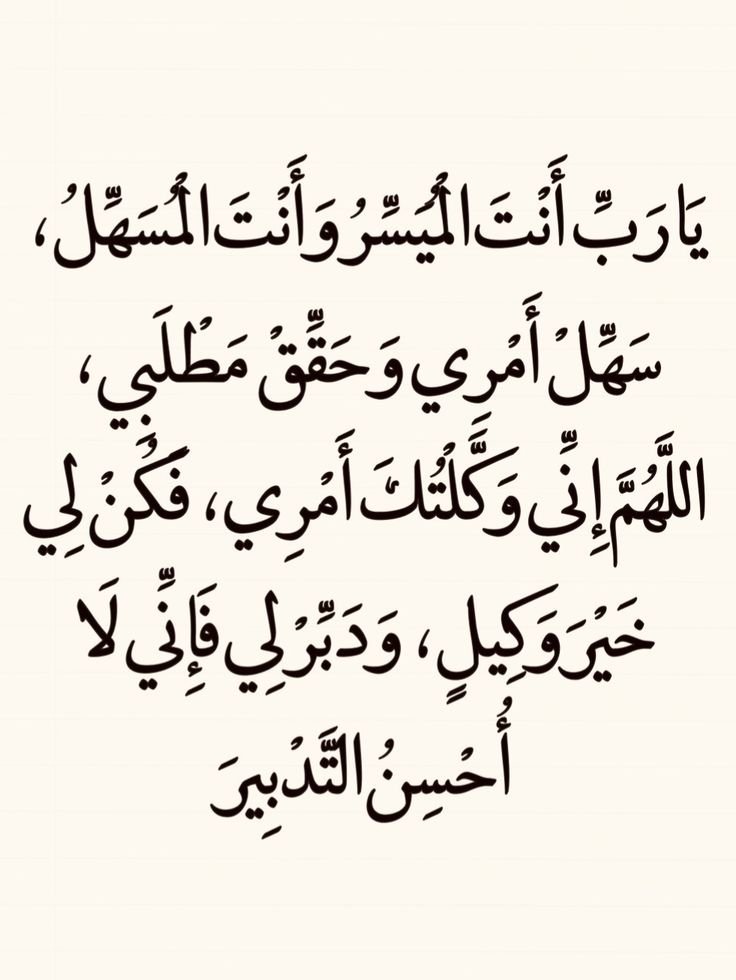 يَا رَبِّ أَنْتَ الْمُيَسِّرُ وَأَنْتَ الْمُسَهِّلُ،
سَهِّلْ أَمْرِي وَحَقِّقْ مَطْلَبِي،
اللَّهُمَّ إِنِّي وَكَّلْتُكَ أَمْرِي، فَكُنْ لِي
خَيْرَ وَكِيلٍ، وَدَبِّرْ لِي فَإِنِّي لَا
أُحْسِنُ التَّدْبِيرَ